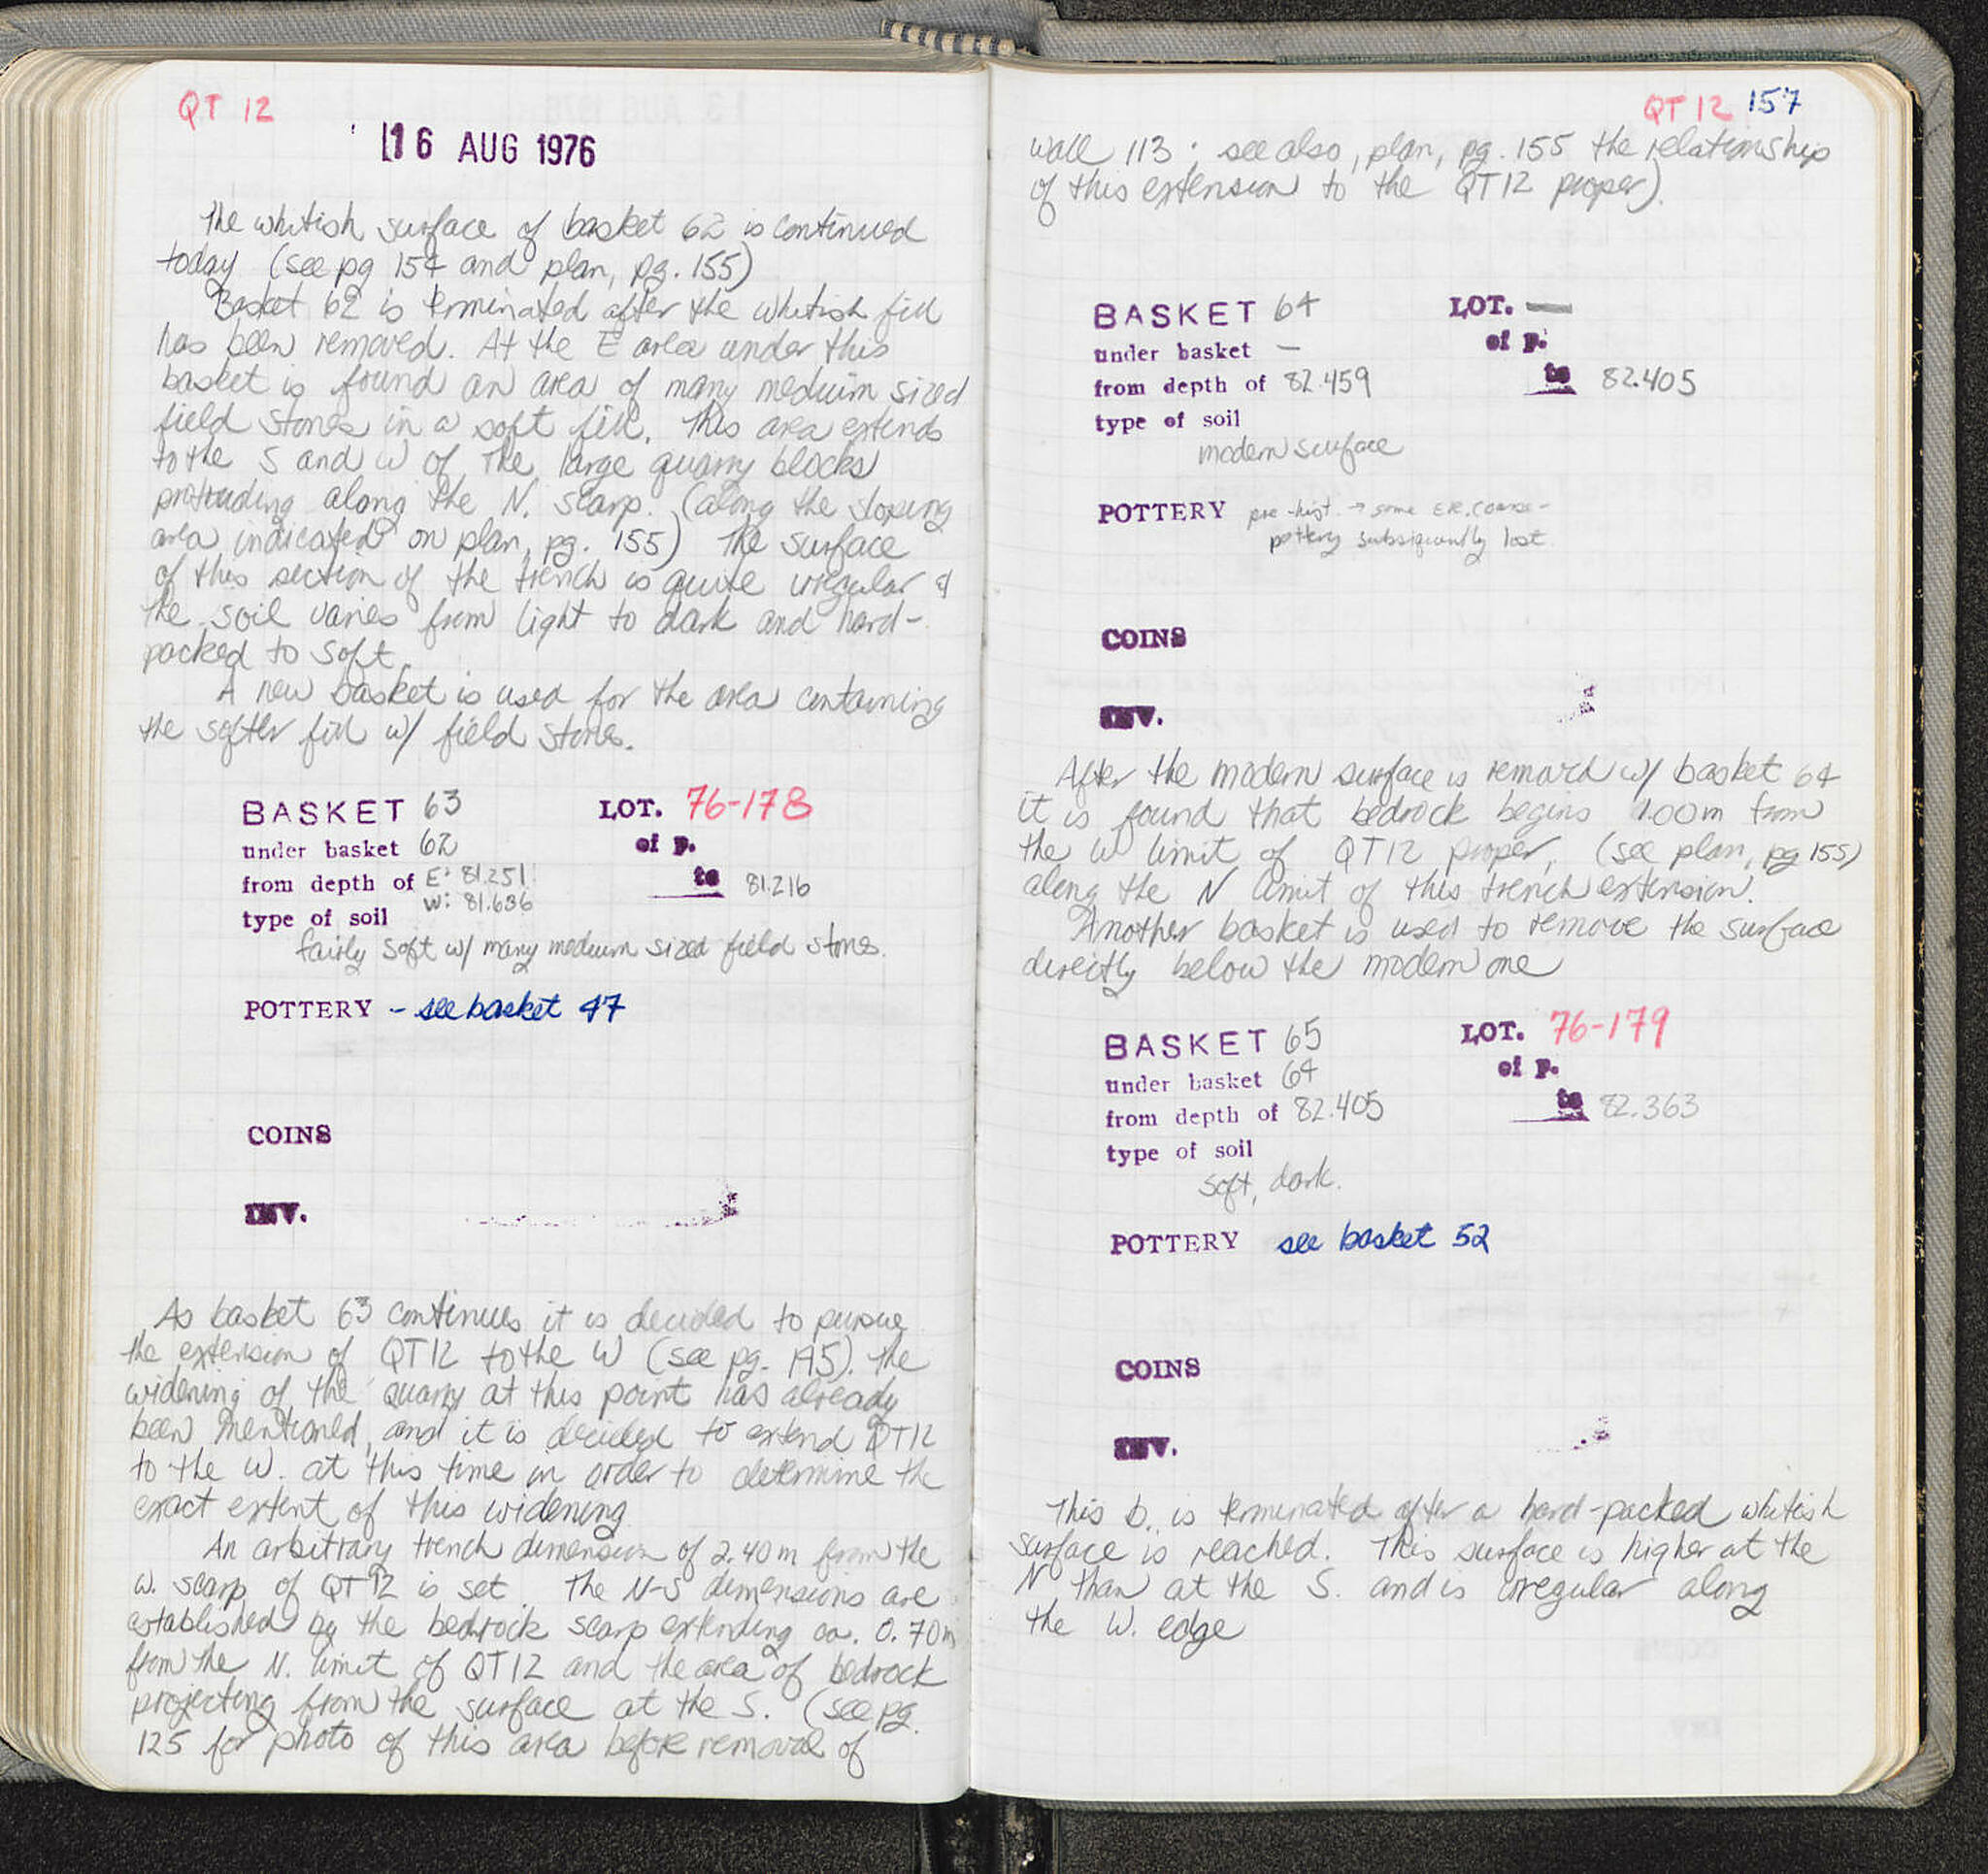 QT 12
16 AUG 1976
The whitish surface of basket 62 is continued
today (see pg 154 and plan, pg. 155)
Basket 62 is terminated after the whitish fill
has been removed. At the E area under this
basket is found an area of many medium sized
field stones in a soft fill. This area extends
to the S and W of the large quarry blocks
protruding along the N. scarp. (along the sloping
area indicated on plan, pg. 155) The surface
of this section of the trench is quite irregular &
the soil varies from light to dark and hard-
packed to soft.
A new basket is used for the area containing
the softer fill w/ field stones.
BASKET 63 LOT. 76-178
under basket 62 of p.
from depth of E: 81.251 to 81.216
W: 81.636
type of soil
fairly soft w/ many medium sized field stones.
POTTERY - see basket 47
COINS
INV.
As basket 63 continues it is decided to pursue
the extension of QT12 to the W (see pg. ). The
widening of the quarry at this point has already
been mentioned, and it is decided to extend QT12
to the W. at this time in order to determine the
exact extent of this widening.
An arbitrary trench dimension of 2.40 m from the
W. scarp of QT12 is set. The N-S dimensions are
established by the bedrock scarp extending ca. 0.70m
from the N. limit of QT12 and the area of bedrock
projecting from the surface at the S. (see pg.
125 for photo of this area before removal of
QT 12 157
wall 113; see also, plan, pg. 155 the relationship
of this extension to the QT12 proper).
BASKET 64 LOT. —
under basket — of p.
from depth of 82.459 to 82.405
type of soil
modern surface
POTTERY pre-hist. → some ER. coarse-
pottery subsequently lost.
COINS
INV.
After the modern surface is removed w/ basket 64
it is found that bedrock begins 1.00m from
the W limit of QT12 proper, (see plan, pg 155)
along the N limit of this trench extension.
Another basket is used to remove the surface
directly below the modern one
BASKET 65 LOT. 76-179
under basket 64 of p.
from depth of 82.405 to 82.363
type of soil
soft, dark.
POTTERY see basket 52
COINS
INV.
This b. is terminated after a hard-packed whitish
surface is reached. This surface is higher at the
N than at the S. and is irregular along
the W. edge